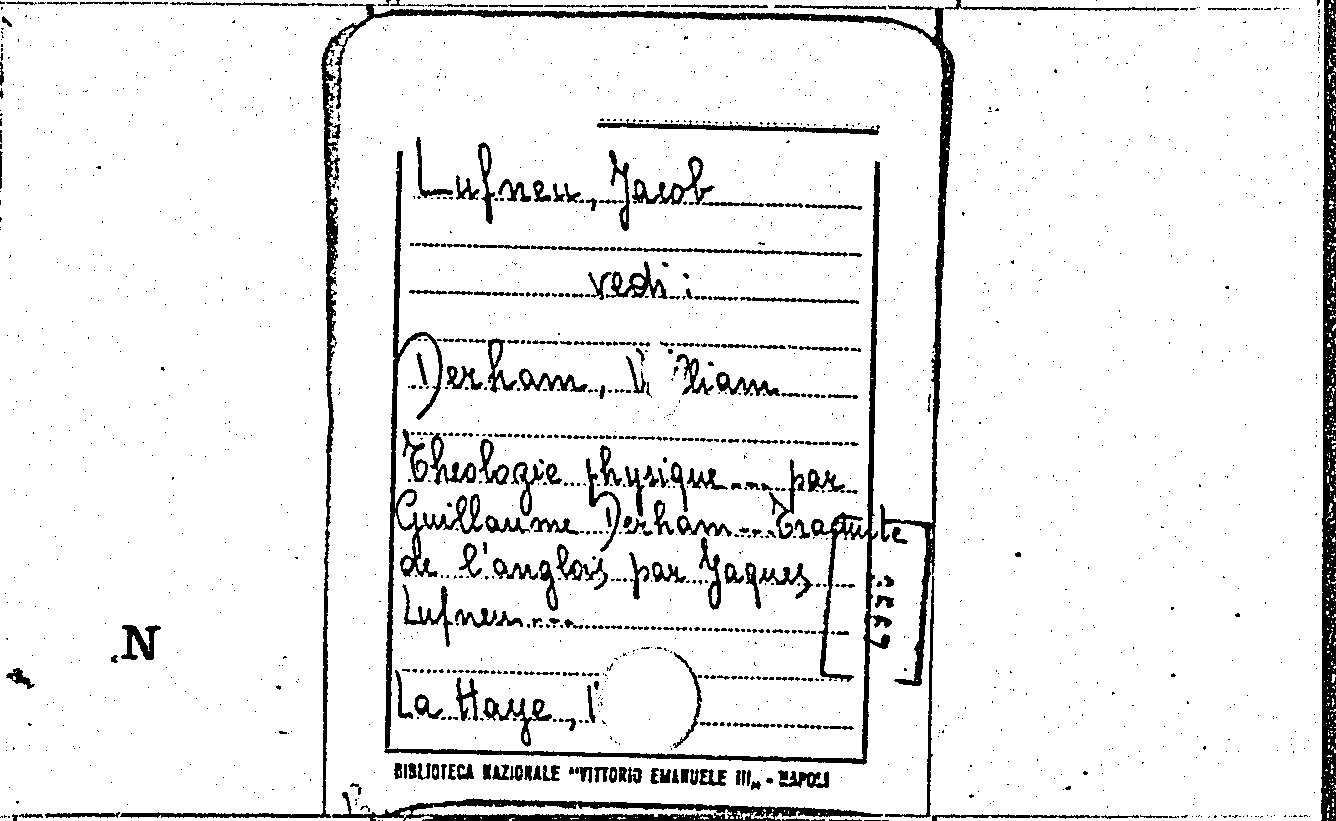 Lufneu, Jacob
vedi:
Derham, William
Theologie physique... par
Guillaume Derham... Traduite
de l'anglois par Jaques
Lufneu...
La Haye, 1
BIBLIOTECA NAZIONALE "VITTORIO EMANUELE III„ - NAPOLI
N